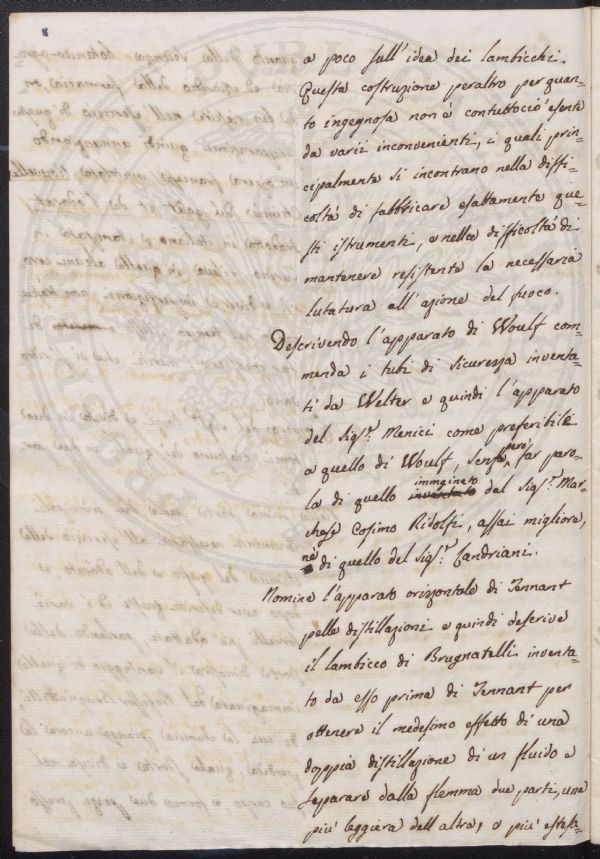 8
a poco sull'idea dei lambicchi.
Questa costruzione peraltro per quan-
to ingegnosa non è contuttociò esente
da varii inconvenienti, i quali prin-
cipalmente si incontrano nella diffi-
coltà di fabbricare esattamente que-
sti istrumenti, e nella difficoltà di
mantenere resistente la necessaria
lutatura all'azione del fuoco.
Descrivendo l'apparato di Woulf com-
menda i tubi di sicurezza inventa-
ti da Welter e quindi l'apparato
del Sigr. Menici come preferibile
a quello di Woulf, senza però far paro-
la di quello inventato immaginato dal Sigr. Mar-
chese Cosimo Ridolfi, assai migliore,
nè di quello del Sigr. Candriani.
Nomina l'apparato orizzontale di Tennant
pelle distillazioni e quindi descrive
il lambicco di Brugnatelli inventa-
to da esso prima di Tennant per
ottenere il medesimo effetto di una
doppia distillazione di un fluido e
separare dalla flemma due parti, una
più leggiera dell'altra, e più estesa-